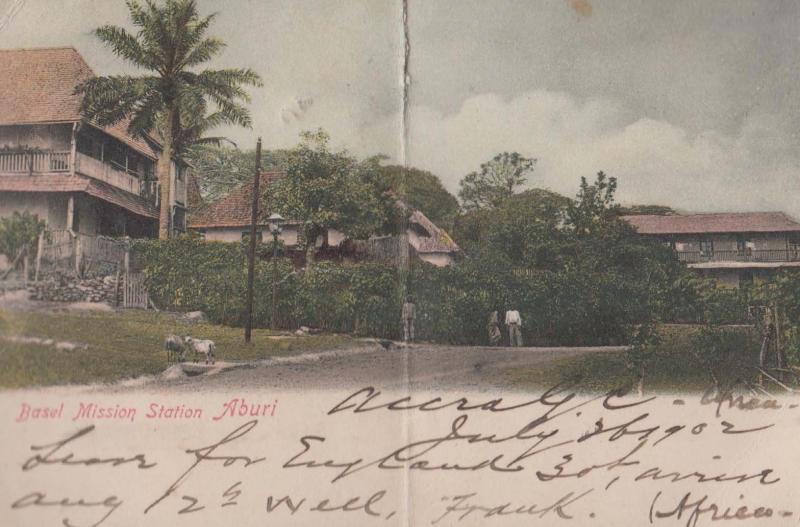 Basel Mission Station Aburi
Accra G.C. - Africa -
July 26 1902
Leave for England 30t, arrive
aug 12th Well, Frank. (Africa -